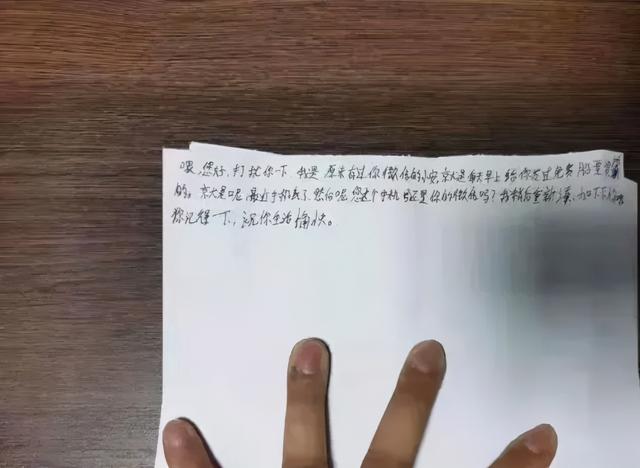 喂,您好,打扰你一下,我是原来有过你微信的小安,就是每天早上给你发过免费股票资
的。就是呢,最近手机丢了,然后呢,您这个手机号还是你的微信吗?我稍后重新 加一下
你记得一下,祝你生活愉快。